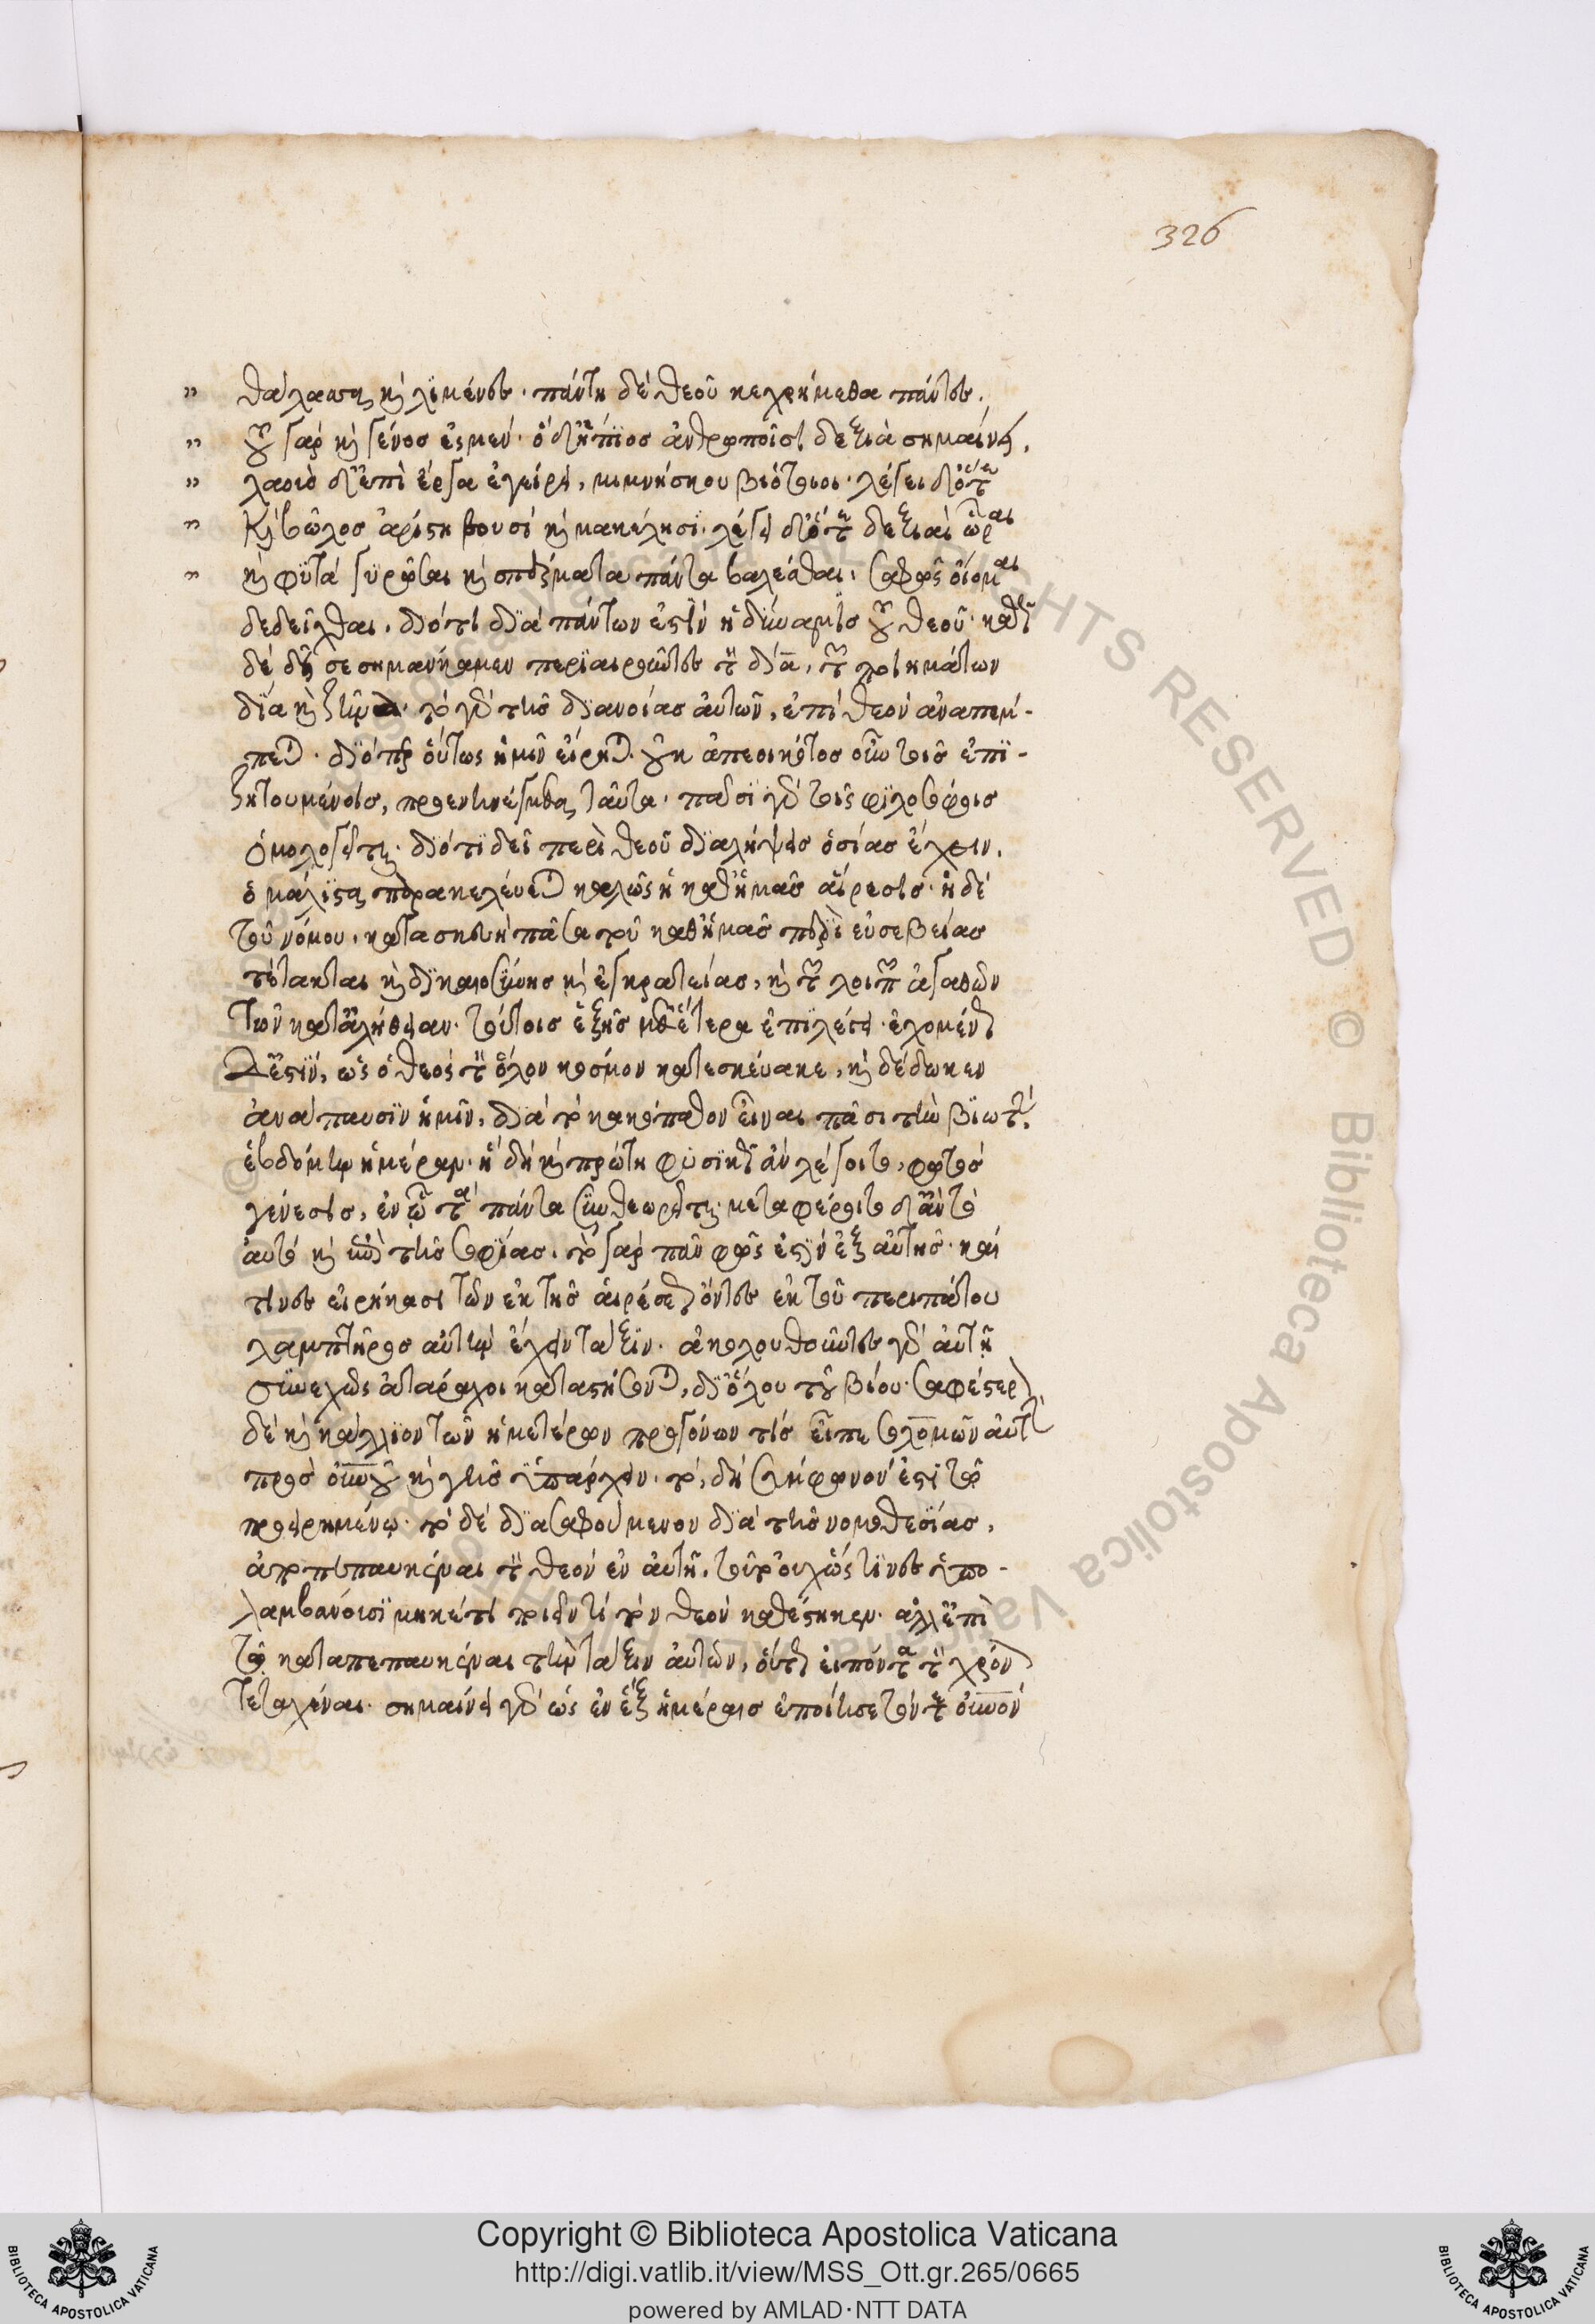 326
θάλασσα καὶ λιμένες· πάντη δὲ θεοῦ κεχρήμεθα πάντες.
τοῦ γὰρ καὶ γένος ἐσμέν· ὁ δ' ἤπιος ἀνθρώποισι δεξιὰ σημαίνει,
λαοὺς δ' ἐπὶ ἔργα ἐγείρει, μιμνήσκου βιότοιο· λέγει δ' ὅτε
βῶλος ἀρίστη βουσὶ καὶ μακέλησι· λέγει δ' ὅτε δεξιαὶ ὧραι
καὶ φυτὰ γυρῶσαι καὶ σπέρματα πάντα βαλέσθαι, σαφῶς οἴομαι
δεδεῖχθαι, διότι διὰ πάντων ἐστὶν ἡ δύναμις τοῦ θεοῦ· καθὼς
δὲ δεῖ σεσημαγκαμεν περιαιροῦντες τὸν δία, τῶν ποιημάτων
δία καὶ ζῆνα· τὸ γὰρ τῆς διανοίας αὐτῶν, ἐπὶ θεὸν ἀναπέμ-
πεται· διόπερ οὕτως ἡμῖν εἴρηται· οὐκ ἀπεοικότος οὖν τοῖς ἐπι-
ζητουμένοις, προενηνέγμεθα ταῦτα· πᾶσι γὰρ τοῖς φιλοσόφοις
ὁμολογεῖται· διότι δεῖ περὶ θεοῦ διαλήψεις ὁσίας ἔχειν,
ὃ μάλιστα παρακελεύεται καλῶς ἡ καθ' ἡμᾶς αἵρεσις· ἡ δὲ
τοῦ νόμου, κατασκευὴ πᾶσα τοῦ καθ' ἡμᾶς περὶ εὐσεβείας
τέτακται καὶ δικαιοσύνης καὶ ἐγκρατείας, καὶ τῶν λοιπῶν ἀγαθῶν
τῶν κατ' ἀλήθειαν· τούτοις ἑξῆς μεθ' ἕτερα ἐπιλέγει· ἐχομένως
δ' ἐστὶν, ὡς ὁ θεὸς τὸν ὅλον κόσμον κατεσκεύακε, καὶ δέδωκεν
ἀνάπαυσιν ἡμῖν, διὰ τὸ κακόπαθον εἶναι πᾶσι τὴν βιωτὴν,
ἑβδόμην ἡμέραν· ἣ δὴ καὶ πρώτη φυσικῶς ἂν λέγοιτο, φωτὸς
γένεσις, ἐν ᾧ τὰ πάντα συνθεωρεῖται· μεταφέροιτο δ' ἂν τὸ
αὐτὸ καὶ ἐπὶ τῆς σοφίας, τὸ γὰρ πᾶν φῶς ἐστὶν ἐξ αὐτῆς· καί
τινες εἰρήκασι τῶν ἐκ τῆς αἱρέσεως ὄντες ἐκ τοῦ περιπάτου
λαμπτῆρος αὐτὴν ἔχειν τάξιν· ἀκολουθοῦντες γὰρ αὐτῇ
συνεχῶς ἀτάραχοι καταστήσονται, δι' ὅλου τοῦ βίου· σαφέστερον
δὲ καὶ κάλλιον τῶν ἡμετέρων προγόνων τὶς εἶπε σολομῶν αὐτὴν
πρὸς οὐνοῦ καὶ γῆς ὑπάρχειν· τὸ, δὴ σύμφωνόν ἐστι τῷ
προειρημένῳ· τὸ δὲ διασαφούμενον διὰ τῆς νομοθεσίας,
ἀποπεπαυκέναι τὸν θεὸν ἐν αὐτῇ, τοῦτο οὐχ ὥς τινες ὑπο-
λαμβάνουσι μηκέτι ποιεῖν τί τὸν θεὸν καθέστηκεν· ἀλλ' ἐπὶ
τῷ καταπεπαυκέναι τὴν τάξιν αὐτῶν, οὕτως εἰς πάντα τὸν χρόνον
τεταχέναι· σημαίνει γὰρ ὡς ἐν ἓξ ἡμέραις ἐποίησε τόν τε οὐνὸν
Copyright © Biblioteca Apostolica Vaticana
http://digi.vatlib.it/view/MSS_Ott.gr.265/0665
powered by AMLAD·NTT DATA